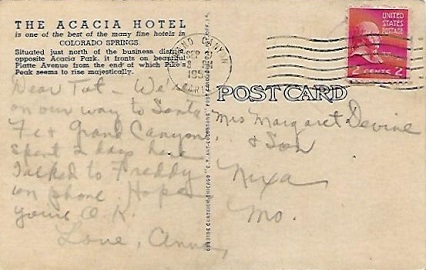 THE ACACIA HOTEL
is one of the best of the many fine hotels in
COLORADO SPRINGS
Situated just north of the business district
opposite Acacia Park, it fronts on beautiful
Platte Avenue from the end of which Pikes
Peak seems to rise majestically.
GRAND CANYON
SEP
195
ARIZ
UNITED
STATES
POSTAGE
2 CENTS 2
POST CARD
Dear Tat - We're
on our way to Santa
Fe & Grand Canyon
spent 2 days here
Talked to Freddy
on phone. Hope
you're O.K.
Love, Anna
Mrs Margaret Devine
& Son
Nixa
Mo.